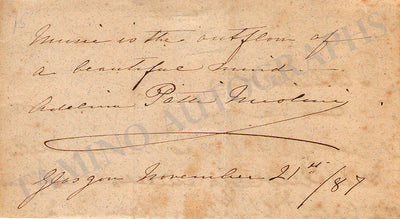 Music is the outflow of
a beautiful mind
Adelina Patti Nicolini
Glasgow November 21st/87
TAMINO AUTOGRAPHS